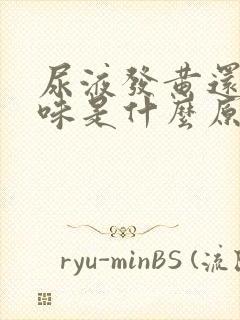 尿液發黃還
味是什麼原
ryu-minBS (流